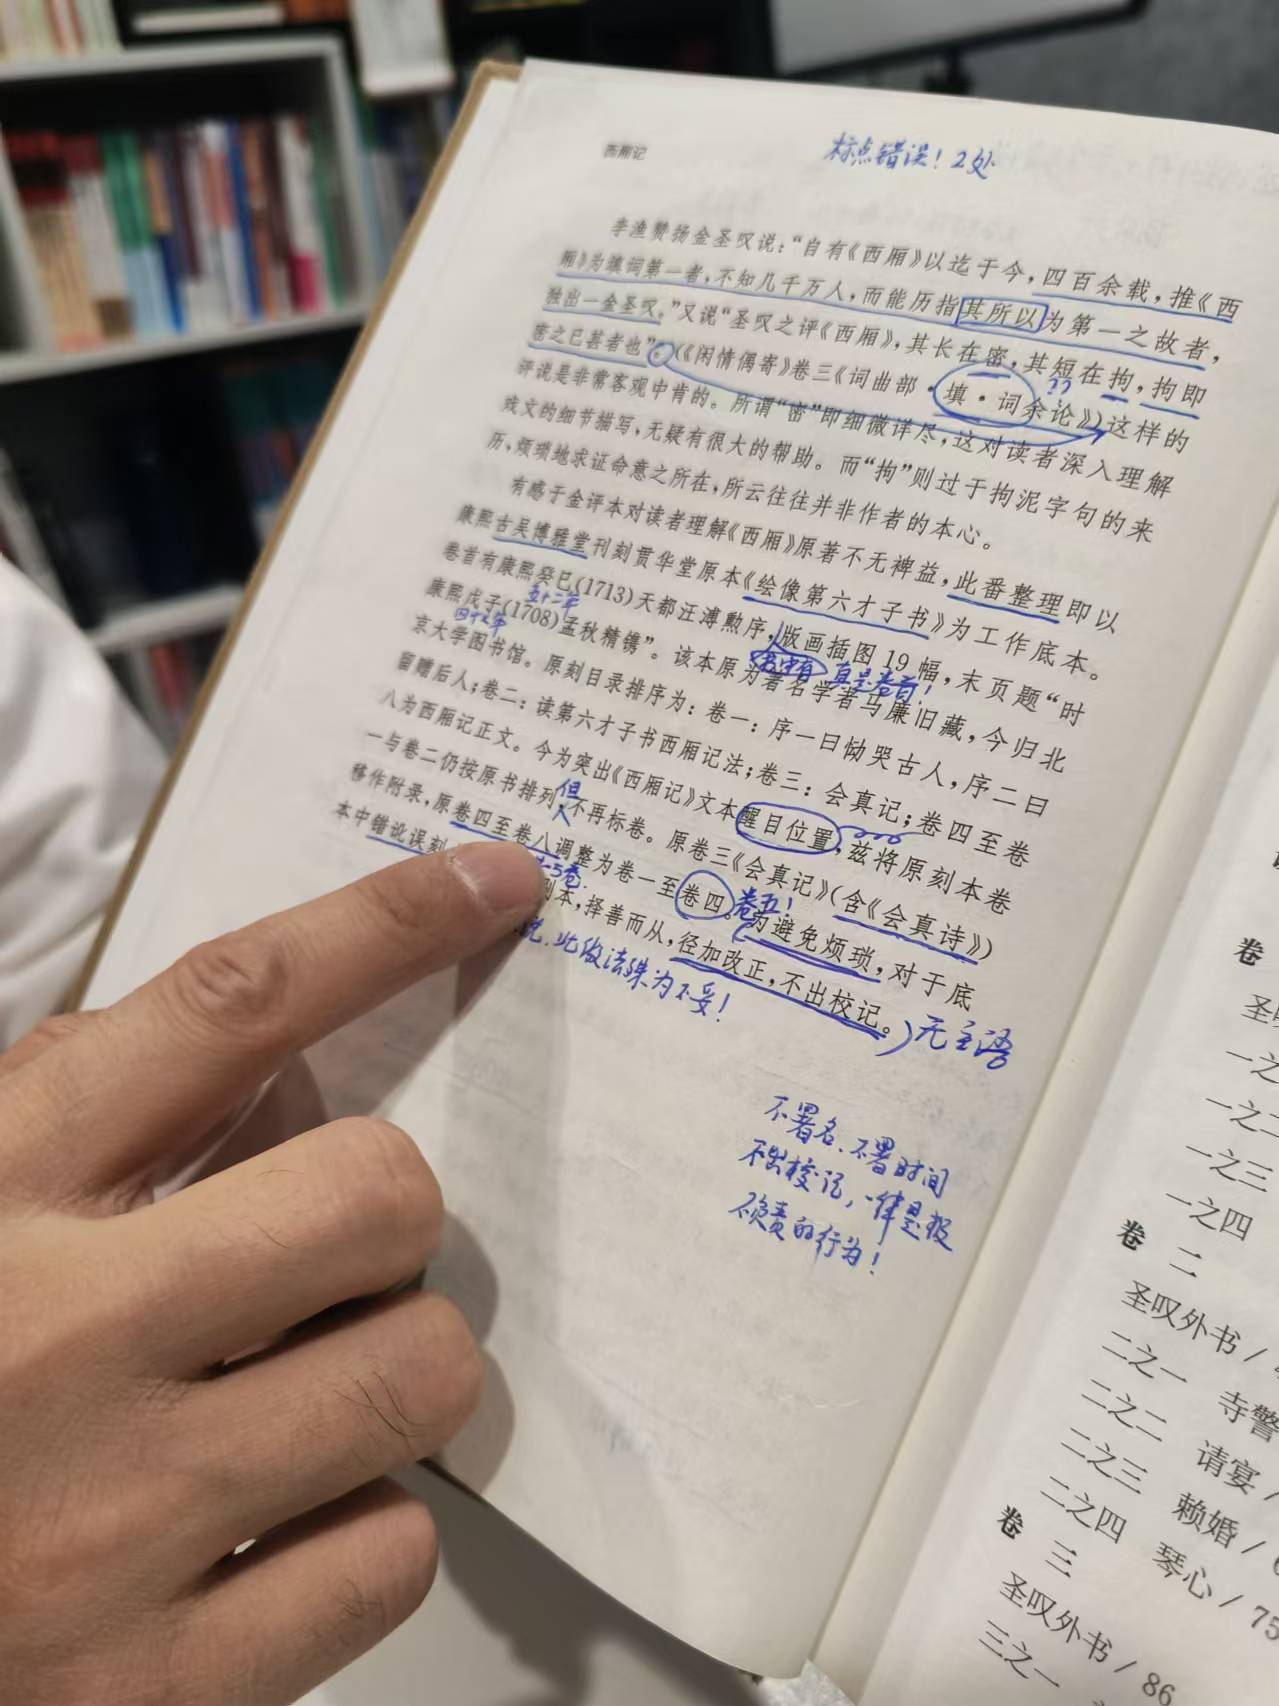 西厢记
标点错误！2处
李渔赞扬金圣叹说：“自有《西厢》以迄于今，四百余载，推《西
厢》为填词第一者，不知几千万人，而能历指其所以为第一之故者，
独出一金圣叹。”又说“圣叹之评《西厢》，其长在密，其短在拘，拘即
密之已甚者也”。（《闲情偶寄》卷三《词曲部·填·词余论》）这样的
??
评说是非常客观中肯的。所谓“密”即细微详尽，这对读者深入理解
戏文的细节描写，无疑有很大的帮助。而“拘”则过于拘泥字句的来
历、烦琐地求证命意之所在，所云往往并非作者的本心。
有感于金评本对读者理解《西厢》原著不无裨益，此番整理即以
康熙古吴博雅堂刊刻贯华堂原本《绘像第六才子书》为工作底本。
卷首有康熙癸巳(1713)天都汪溥勲序，版画插图19幅，末页题“时
五十二年
书中有 真是卷首！
康熙戊子(1708)孟秋精镌”。该本原为著名学者马廉旧藏，今归北
四十七年
京大学图书馆。原刻目录排序为：卷一：序一曰恸哭古人，序二曰
留赠后人；卷二：读第六才子书西厢记法；卷三：会真记；卷四至卷
八为西厢记正文。今为突出《西厢记》文本醒目位置，兹将原刻本卷
一与卷二仍按原书排列，不再标卷。原卷三《会真记》（含《会真诗》）
但
移作附录，原卷四至卷八调整为卷一至卷四。为避免烦琐，对于底
5卷
卷五！
本中错讹误刻
刻本，择善而从，径加改正，不出校记。
无主语
此做法殊为不妥！
不署名、不署时间
不出校记，一律是极
不负责的行为！
卷
圣
一之
一之二
一之三
一之四
卷 二
圣叹外书 /
二之一 寺警
二之二 请宴 /
二之三 赖婚 /
二之四 琴心 / 75
卷 三
圣叹外书 / 86
三之一